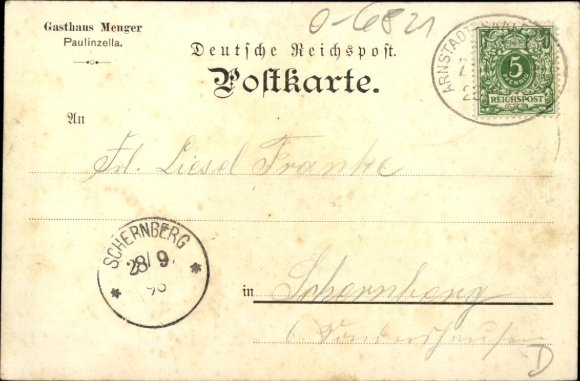 Gasthaus Menger
Paulinzella.
0-6821
Deutsche Reichspost.
Postkarte.
ARNSTADT
5
REICHSPOST
An
Frl. Liesel Franke
SCHERNBERG
28/9.
98
in Schernberg
b. Sondershausen
D